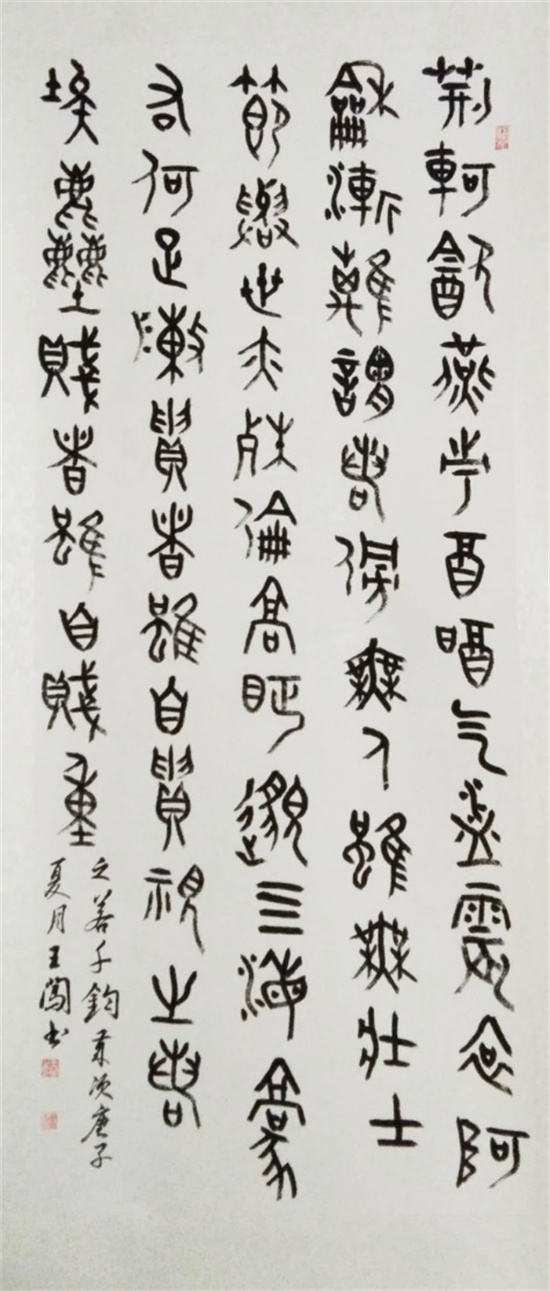 荊軻飲燕市酉酣气益震哀歌
龢漸離謂若傍無人雖無壯士
節與世亦殊倫高眄邈三海豪
右何足陳貴者雖自貴視之若
埃塵賤者雖自賤重
之若千鈞歲次庚子
夏月王闖书